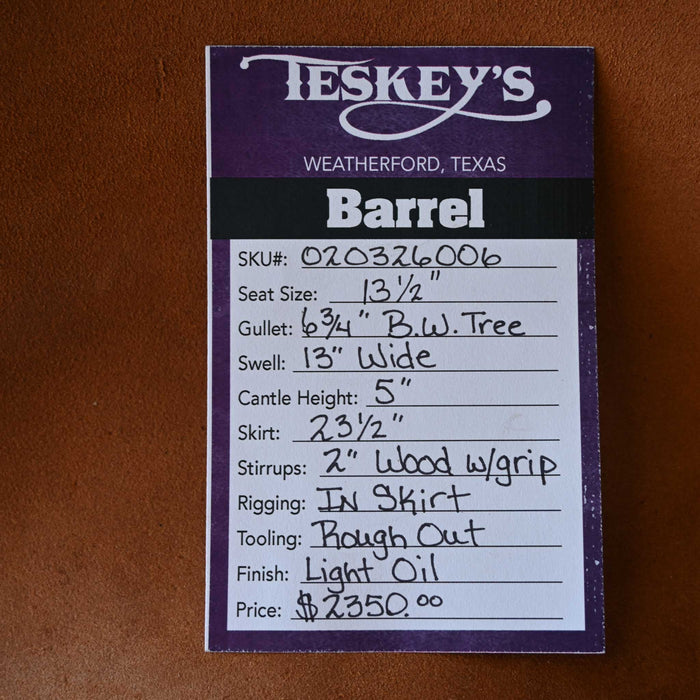 TESKEY'S
WEATHERFORD, TEXAS
Barrel
SKU#: 020326006
Seat Size: 13 1/2"
Gullet: 6 3/4" B.W. Tree
Swell: 13" Wide
Cantle Height: 5"
Skirt: 23 1/2"
Stirrups: 2" Wood w/grip
Rigging: IN Skirt
Tooling: Rough Out
Finish: Light Oil
Price: $2350.00